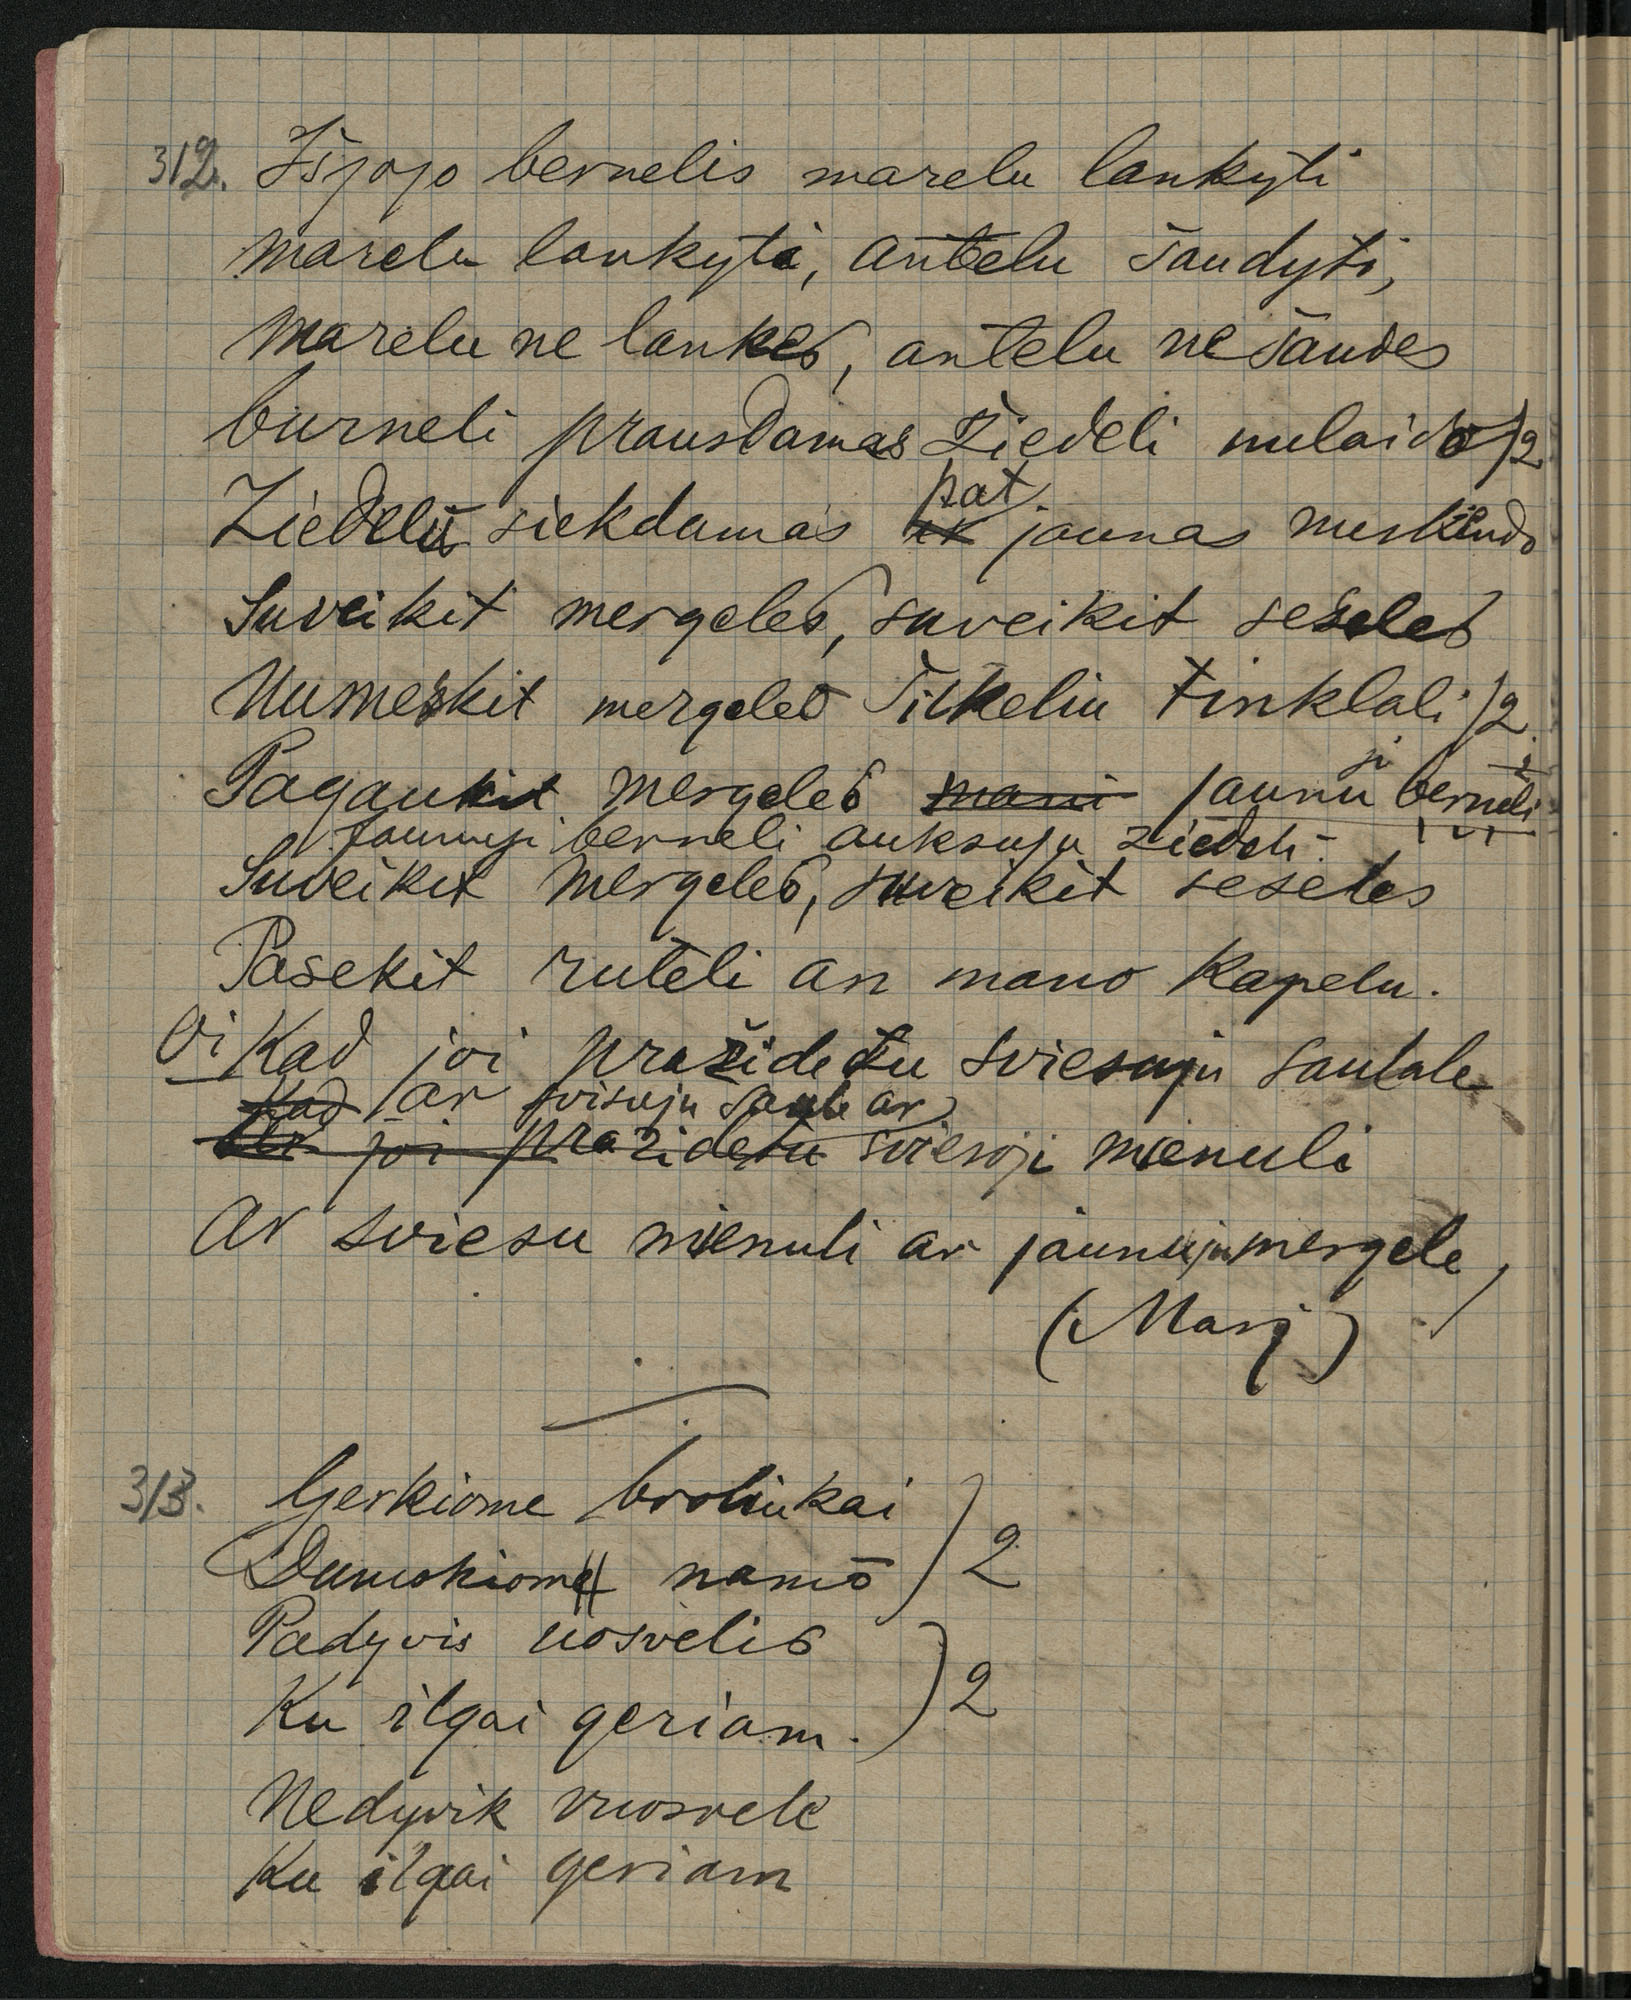 312. Išjojo bernelis marelu lankyti
marelu lankyti, antelu šaudyti,
marelu ne lankes, antelu ne šaudes
burneli prausdamas žiedeli nulaido)2
pat
Ziedelu siekdamas jaunas nuskendo
Suveikit mergeles, suveikit seseles
Numeskit mergeles šilkeliu tinklali)2
ji
Pagaukit mergeles mani jaunu berneli
Jaunuji berneli auksuju ziedeli
Suveikit mergeles, suveikit seseles
Pasekit ruteli an mano kapelu.
Oi Kad joi pražidetu sviesuju saulale
Kad ar svisuju saule ar
joi prazidetu sviesoji mienuli
Ar sviesu mienuli ar jaunuju mergele
(Marj)
313. Gerkiome broliukai
Dumokiome namo )2
Padyvis uosvelis
Ku ilgai geriam. )2
Nedyvik vuosvele
Ku ilgai geriam